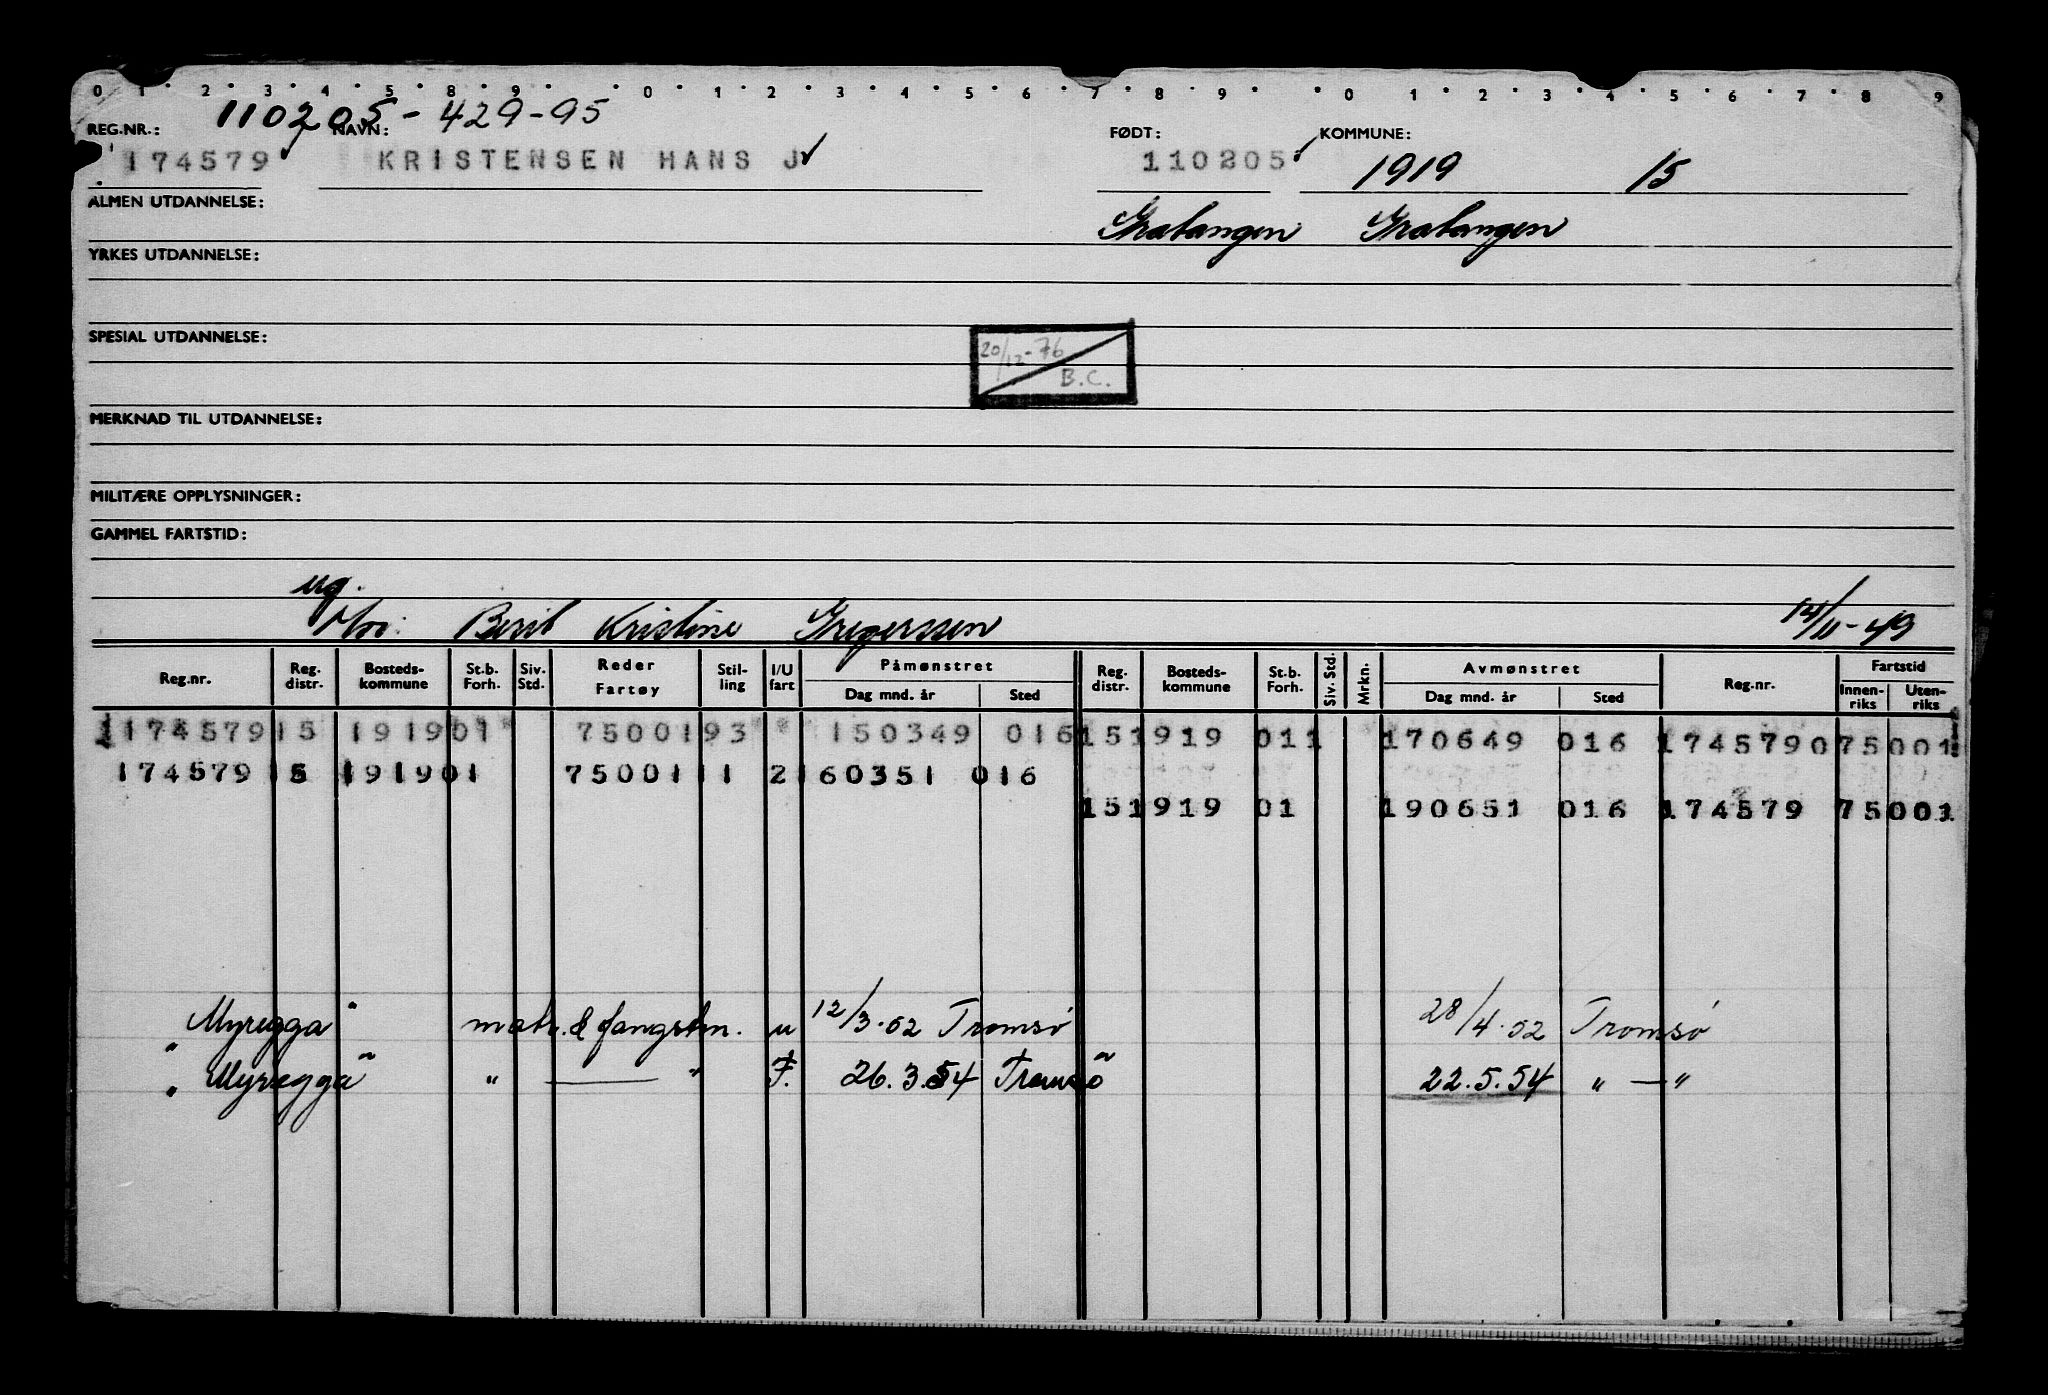 0 1 2 3 4 5 8 9 0 1 2 3 4 5 6 7 8 9 0 1 2 3 4 5 6 7 8 9
110205 - 429-95
REG.NR.: NAVN: FØDT: KOMMUNE:
174579 KRISTENSEN HANS J 110205 1919 15
ALMEN UTDANNELSE: Gratangen Gratangen
YRKES UTDANNELSE:
SPESIAL UTDANNELSE:
20/12-76
B.C.
MERKNAD TIL UTDANNELSE:
MILITÆRE OPPLYSNINGER:
GAMMEL FARTSTID:
ug.
Mor: Berit Kristine Gregerssen 14/11-49
Reg.nr. Reg. distr. Bosteds-kommune St.b. Forh. Siv. Std. Reder Fartøy Stil-ling I/U fart Påmønstret Dag mnd. år Sted Reg. distr. Bosteds-kommune St.b. Forh. Siv. Std. Mrkn. Avmønstret Dag mnd. år Sted Reg.nr. Fartstid Innen-riks Uten-riks
174579 15 1919 01 75001 93 150349 016 15 1919 011 170649 016 174579 075001
174579 15 1919 01 75001 11 2 160351 016
15 1919 01 190651 016 174579 75001
"Myregga" matr. & fangstm. u 12/3.52 Tromsø 28/4.52 Tromsø
"Myregga" " — " F. 26.3.54 Tromsø 22.5.54 " — "